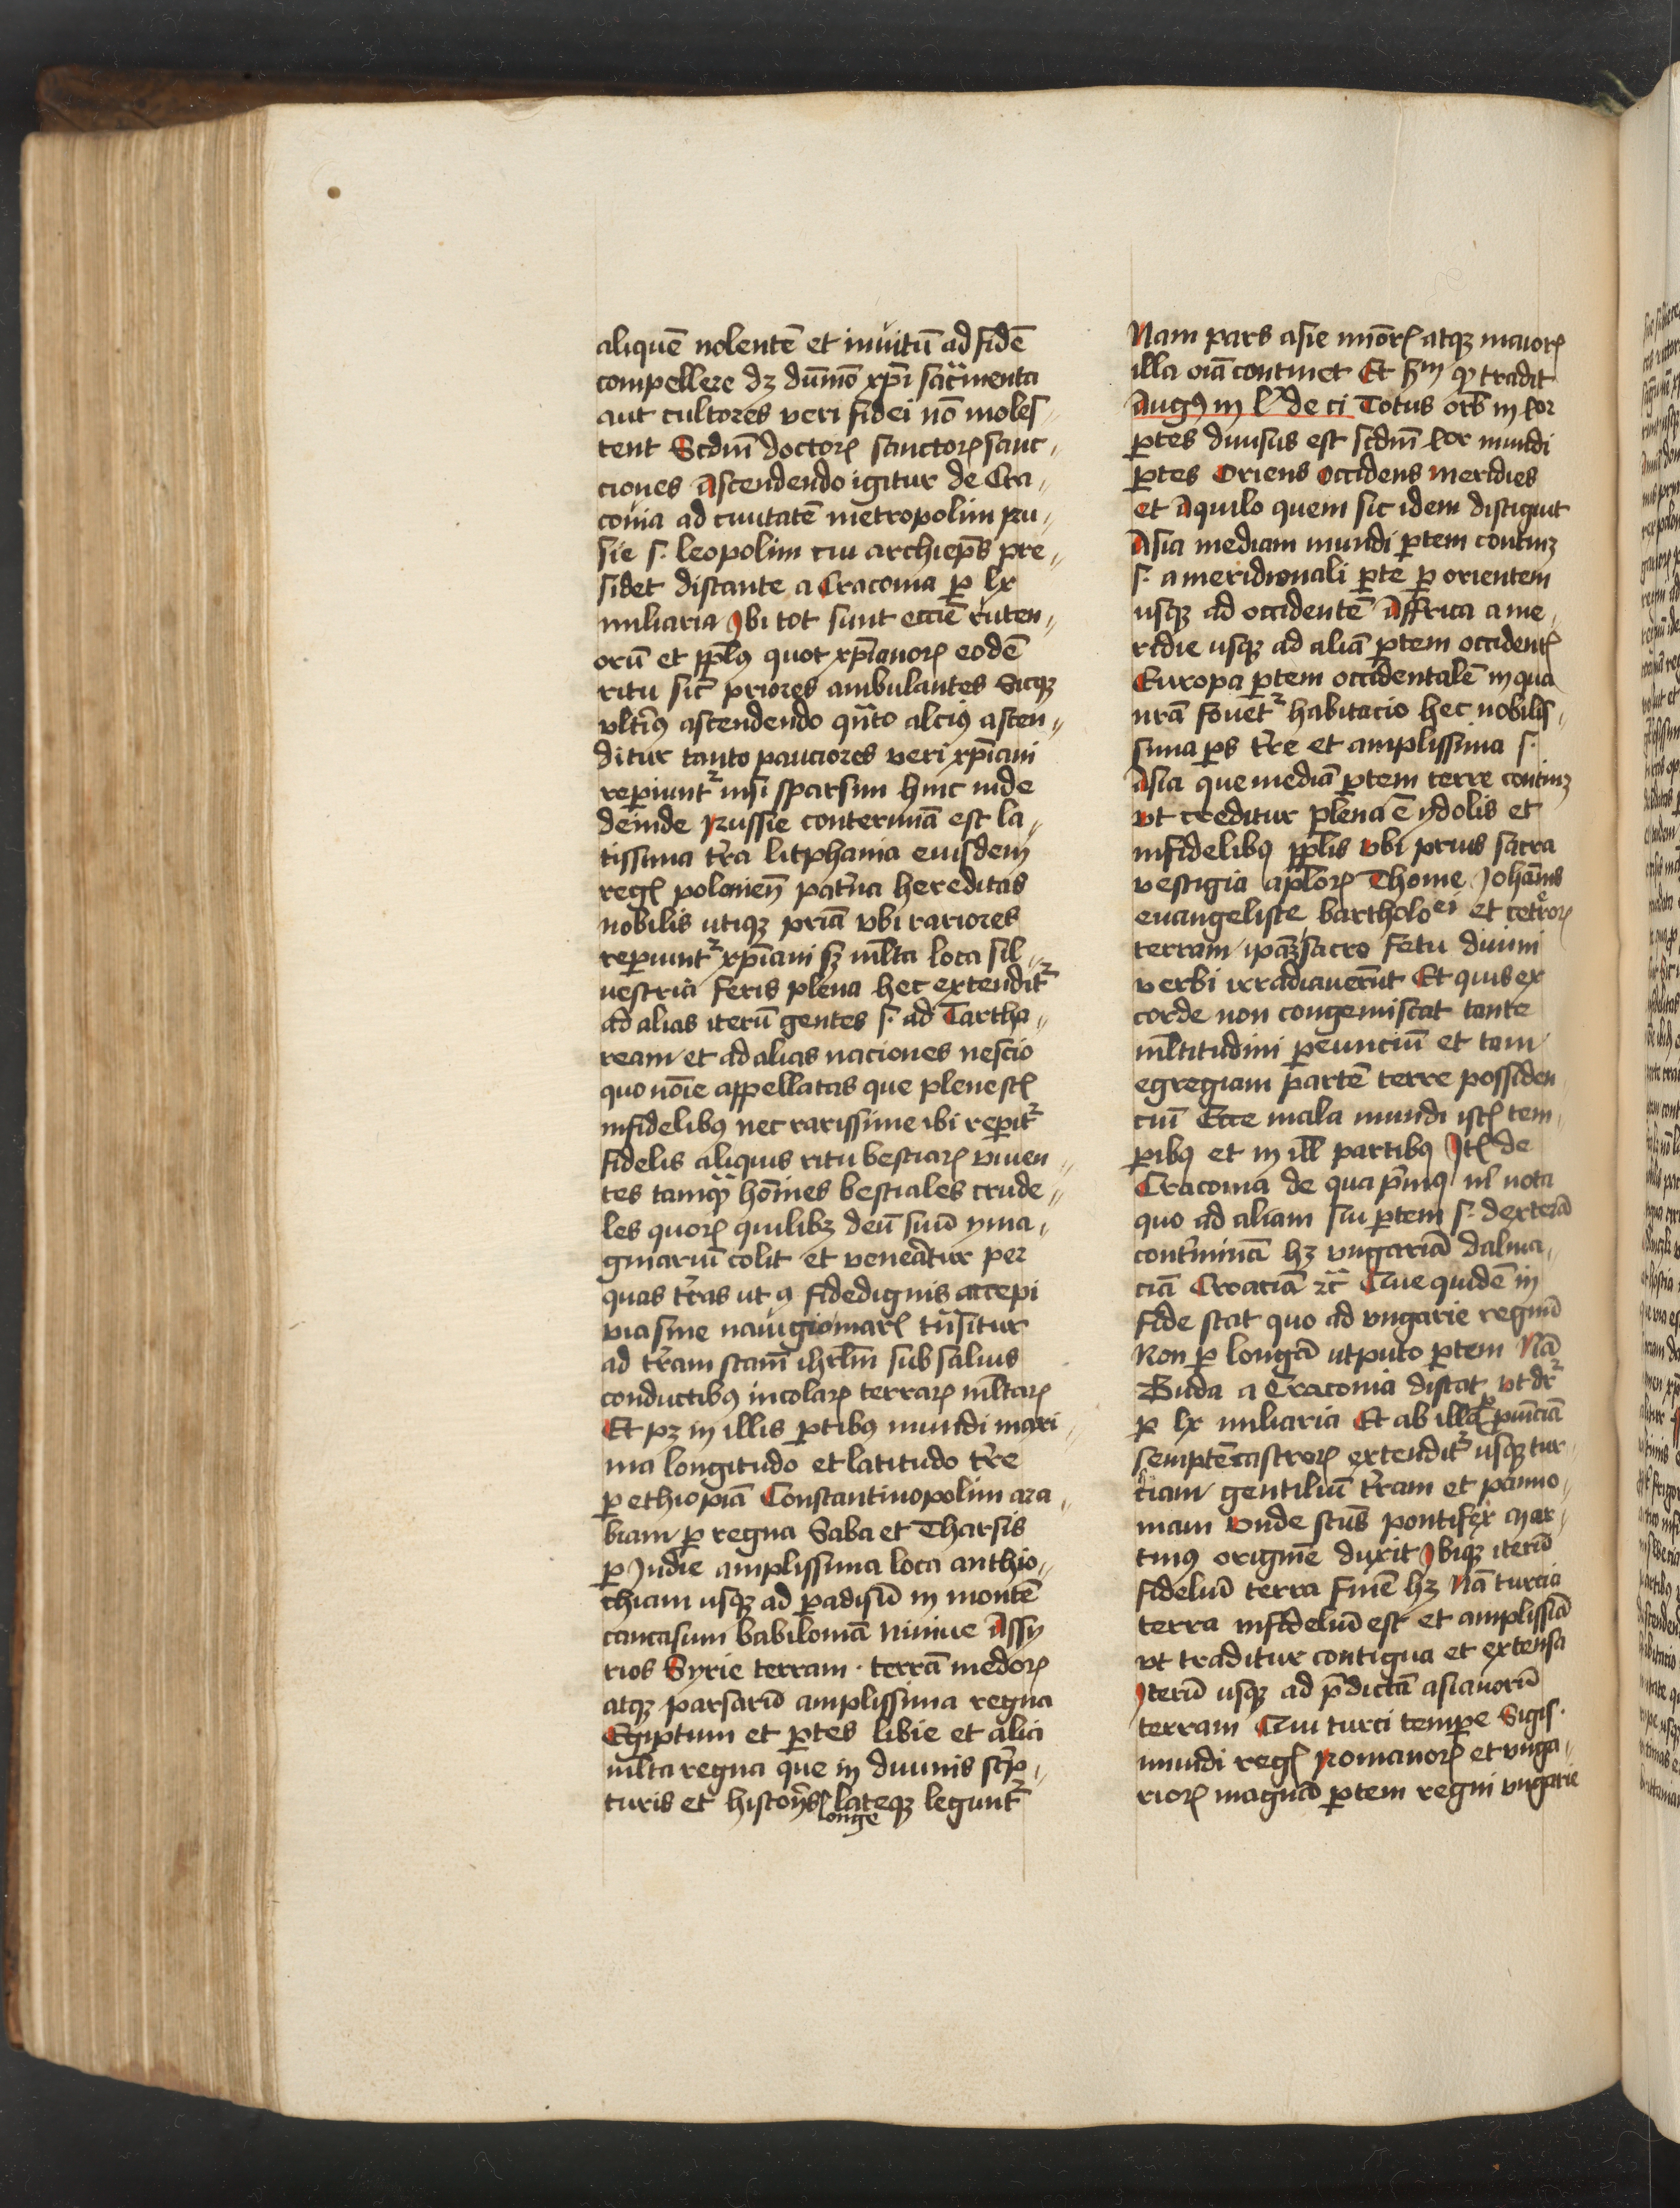 aliquē nolentē et invitū ad fidē
compellere dꝫ dūmō xp̄i sac̄menta
aut cultores veri fidei nō moles
tent Scdm̄ doctoꝝ sanctoꝝ sanc
ciones Ascendendo igitur de Cra
covia ad civitatē metropolim ru
sie s. leopolim cui archiep̄s pre
sidet distante a Cracovia ꝑ lx
miliaria Ibi tot sunt eccīe ruten
orū et ppl̄ꝰ quot xp̄ianoꝝ eodē
ritu sic priores ambulantes Sicqꝫ
vlterꝰ ascendendo qn̄to alciꝰ ascen
ditur tanto pauciores veri xp̄iani
reperiunt᷑ nisi sparsim hinc inde
deinde Russie conterminā est la
tissima tr̄ra litphania eiusdem
regꝭ polonien̄ pat̄na hereditas
nobilis utiqꝫ pr̄iā vbi rariores
reperiunt᷑ xp̄iani sꝫ ml̄ta loca sil
vestria feris plena hec extendit᷑
ad alias iterū gentes s. ad Tartha
ream et ad alias naciones nescio
quo nōie appellatas que plene sꝭ
infidelibꝰ nec rarissime ibi reperit᷑
fidelis aliquis ritu bestiaꝝ viven
tes tamqꝫ hōines bestiales crude
les quoꝝ quilibꝫ deū suū yma
ginariū colit et veneratur per
quas tr̄ras ut a fidedignis accepi
via sine navigio marꝭ tn̄situr
ad tr̄ram sc̄am ihrlm̄ sub salvis
conductibꝰ incolaꝝ terraꝝ ml̄taꝝ
Et pꝫ in illis ꝑtibꝰ mundi maxi
ma longitudo et latitudo tr̄re
ꝑ ethiopiā Constantinopolim ara
biam ꝑ regna Saba et Tharsis
ꝑ Indie amplissima loca anthio
chiam usqꝫ ad ꝑadisū in montē
caucasum babiloniā Ninive Assy
rios Syrie terram . terrā medoꝝ
atqꝫ parsarū amplissima regna
Egiptum et ꝑtes libie et alia
ml̄ta regna que in divinis scrip
turis et historijs lateqꝫ legunt᷑
longe
Nam pars asie mīoꝝ atqꝫ maioꝝ
illa oīa continet Et sm̄ qꝫ tradit
Augꝰ in l de ci Totus orb in
ꝑtes divisus est scdm̄ mundi
ꝑtes Oriens Occidens meridies
et Aquilo quem sic idem distiguit
Asia mediam mundi ꝑtem continꝫ
s. a meridionali ꝑte ꝑ orientem
usqꝫ ad occidentē Affrica a me
ridie usqꝫ ad aliā ꝑtem occidentꝭ
Europa ꝑtem occidentalē in qua
nrā fovet᷑ habitacio hec nobilis
sima ꝑs tr̄re et amplissima s.
Asia que mediā ꝑtem terre continꝫ
vt creditur plena ē ydolis et
infidelibꝰ ppl̄is vbi prius sacra
vestigia apl̄oꝝ Thome Johānis
evangeliste bartholoei et ceteroꝝ
terram ip̄aꝫ sacro fetu divini
verbi irradiaverūt Et quis ex
corde non congemiscat tante
ml̄titudini ꝑeunciū et tam
egregiam partē terre possiden
ciū Ecce mala mundi istꝭ tem
ꝑibꝰ et in ill partibꝰ Itꝭ de
Cracovia de qua pͥmꝰ nota
quo ad aliam sui ꝑtem s. dexterā
conterminā hꝫ vngariā dalma
ciā Croaciā ⁊c̄ Que quidē in
fide stat quo ad vngarie regnū
Non ꝑ longā ut puto ꝑtem Nā
Buda a Cracovia distat vt dr᷑
ꝑ lx miliaria Et ab illa ꝓvinciā
semptē castroꝝ extendit᷑ usqꝫ tur
ciam gentiliū tr̄ram et panno
niam Vnde scūs pontifex Mar
tinꝰ originē duxit Ibiqꝫ iterū
fideliū terra finē hꝫ Nā turcia
terra infideliū est et amplissiā
vt traditur contigua et extensa
Iterū usqꝫ ad p̄dictā asianorū
terram Qui turci tempore Sigis
mundi regꝭ Romanoꝝ et vnga
rioꝝ magnā ꝑtem regni vngarie